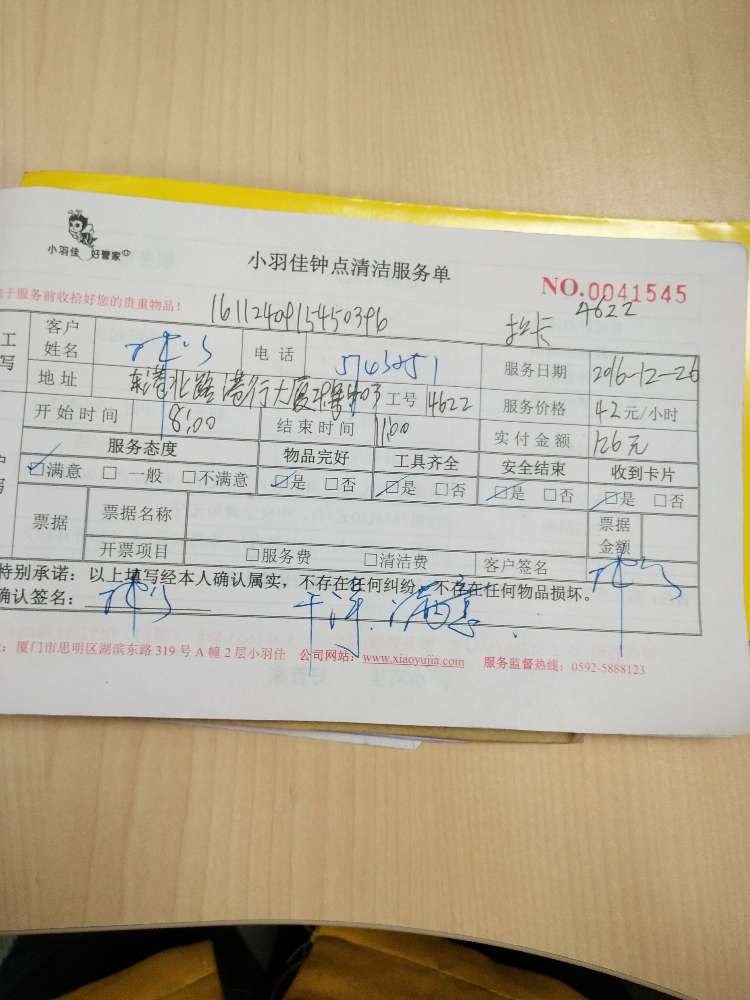 小羽佳 好管家
小羽佳钟点清洁服务单
NO.0041545
于服务前收拾好您的贵重物品！
1611240915450396
4622
工
写
客户
姓名
电话
服务日期 2016-12-26
地址 东港北路港行大厦 工号 4622 服务价格 42元/小时
开始时间 8:00 结束时间 11:00 实付金额 126元
服务态度 物品完好 工具齐全 安全结束 收到卡片
☑满意 □一般 □不满意 ☑是 □否 ☑是 □否 ☑是 □否 ☑是 □否
票据 票据名称 票据
金额
开票项目 □服务费 □清洁费 客户签名
特别承诺：以上填写经本人确认属实，不存在任何纠纷，不存在任何物品损坏。
确认签名： 干净 满意
：厦门市思明区湖滨东路 319 号 A 幢 2 层小羽佳 公司网站：www.xiaoyujia.com 服务监督热线：0592-5888123